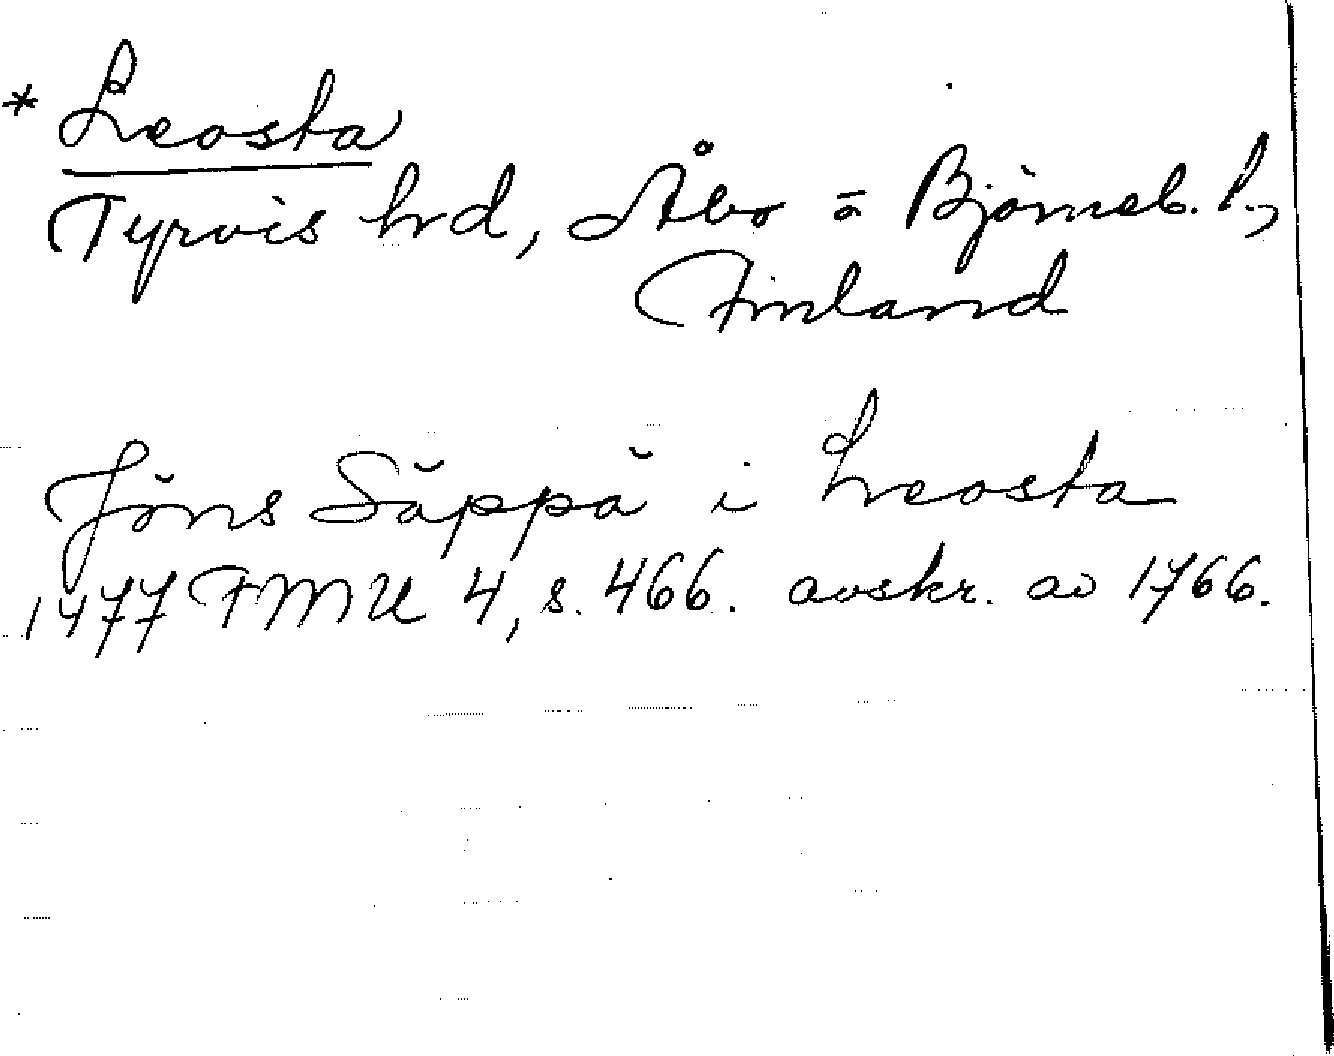 * Leosta
Tyrvis hrd, Åbo o Björneb. l.,
Finland
Jöns Säppä i Leosta
1477 FMU 4, s. 466. avskr. av 1766.